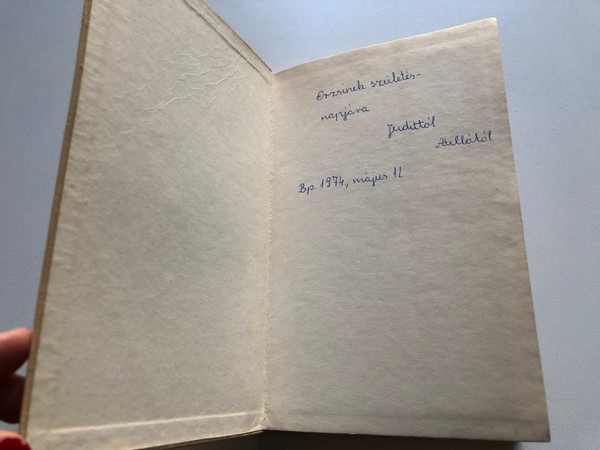 Erzsinek születés-
napjára
Judittól
Attilától
Bp. 1974, május 12